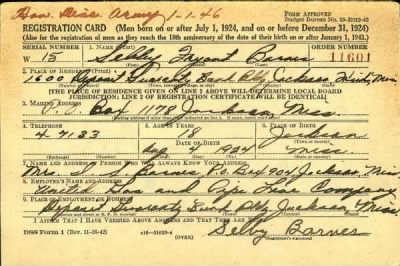 Hon. Disc. Army 1-1-46
FORM APPROVED
REGISTRATION CARD (Men born on or after July 1, 1924, and on or before December 31, 1924)
(Also for the registration of men as they reach the 18th anniversary of the date of their birth on or after January 1, 1943.)
SERIAL NUMBER
1. NAME (Print)
ORDER NUMBER
W 15 Selby Bryant Barnes 11601
2. PLACE OF RESIDENCE (Print)
1600 Deposit Guaranty Bank Bldg Jackson Hinds Miss
[THE PLACE OF RESIDENCE GIVEN ON LINE 2 ABOVE WILL DETERMINE LOCAL BOARD
JURISDICTION; LINE 2 OF REGISTRATION CERTIFICATE WILL BE IDENTICAL]
3. MAILING ADDRESS
P. O. Box 1170 Jackson Miss.
4. TELEPHONE
5. AGE IN YEARS
6. PLACE OF BIRTH
4-7133 18 Judson
DATE OF BIRTH
1924 Miss
7. NAME AND ADDRESS OF PERSON WHO WILL ALWAYS KNOW YOUR ADDRESS
Mrs. Barnes P.O. Box 904 Jackson, Miss
8. EMPLOYER'S NAME AND ADDRESS
United Gas and Pipe Line Company
9. PLACE OF EMPLOYMENT OR BUSINESS
Deposit Guaranty Bank Bldg Jackson Miss.
I AFFIRM THAT I HAVE VERIFIED ABOVE ANSWERS AND THAT THEY ARE TRUE.
DSS Form 1 (Rev. 11-16-42)
Selby Barnes
(Registrant's signature)